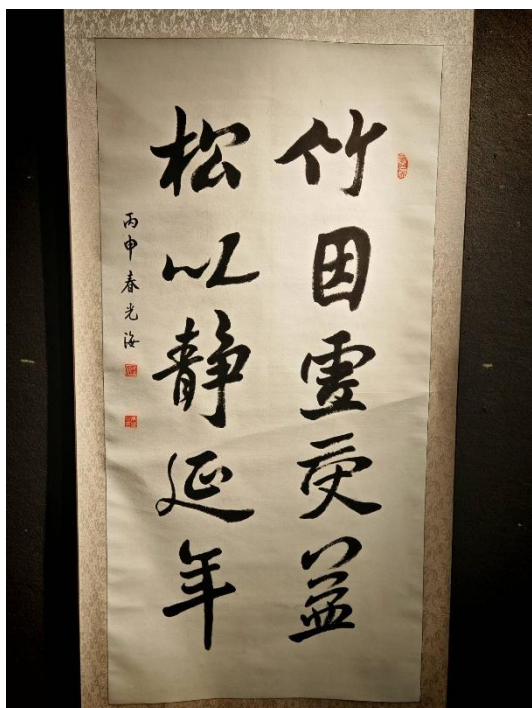 竹因虚受益
松以静延年
丙申春光海